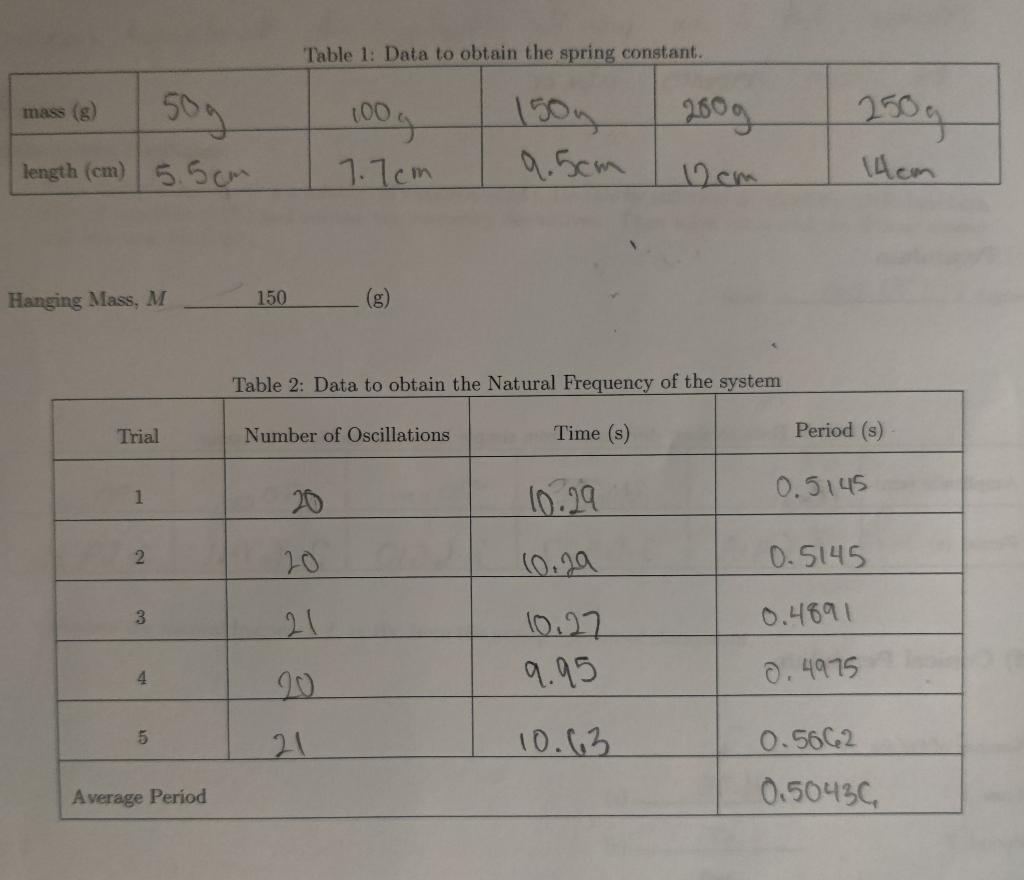 Table 1: Data to obtain the spring constant.
mass (g) 50g 100g 150g 200g 250g
length (cm) 5.5cm 7.7cm 9.5cm 12cm 14cm
Hanging Mass, M 150 (g)
Table 2: Data to obtain the Natural Frequency of the system
Trial Number of Oscillations Time (s) Period (s)
1 20 10.29 0.5145
2 20 10.29 0.5145
3 21 10.27 0.4891
4 20 9.95 0.4975
5 21 10.63 0.5662
Average Period 0.50436